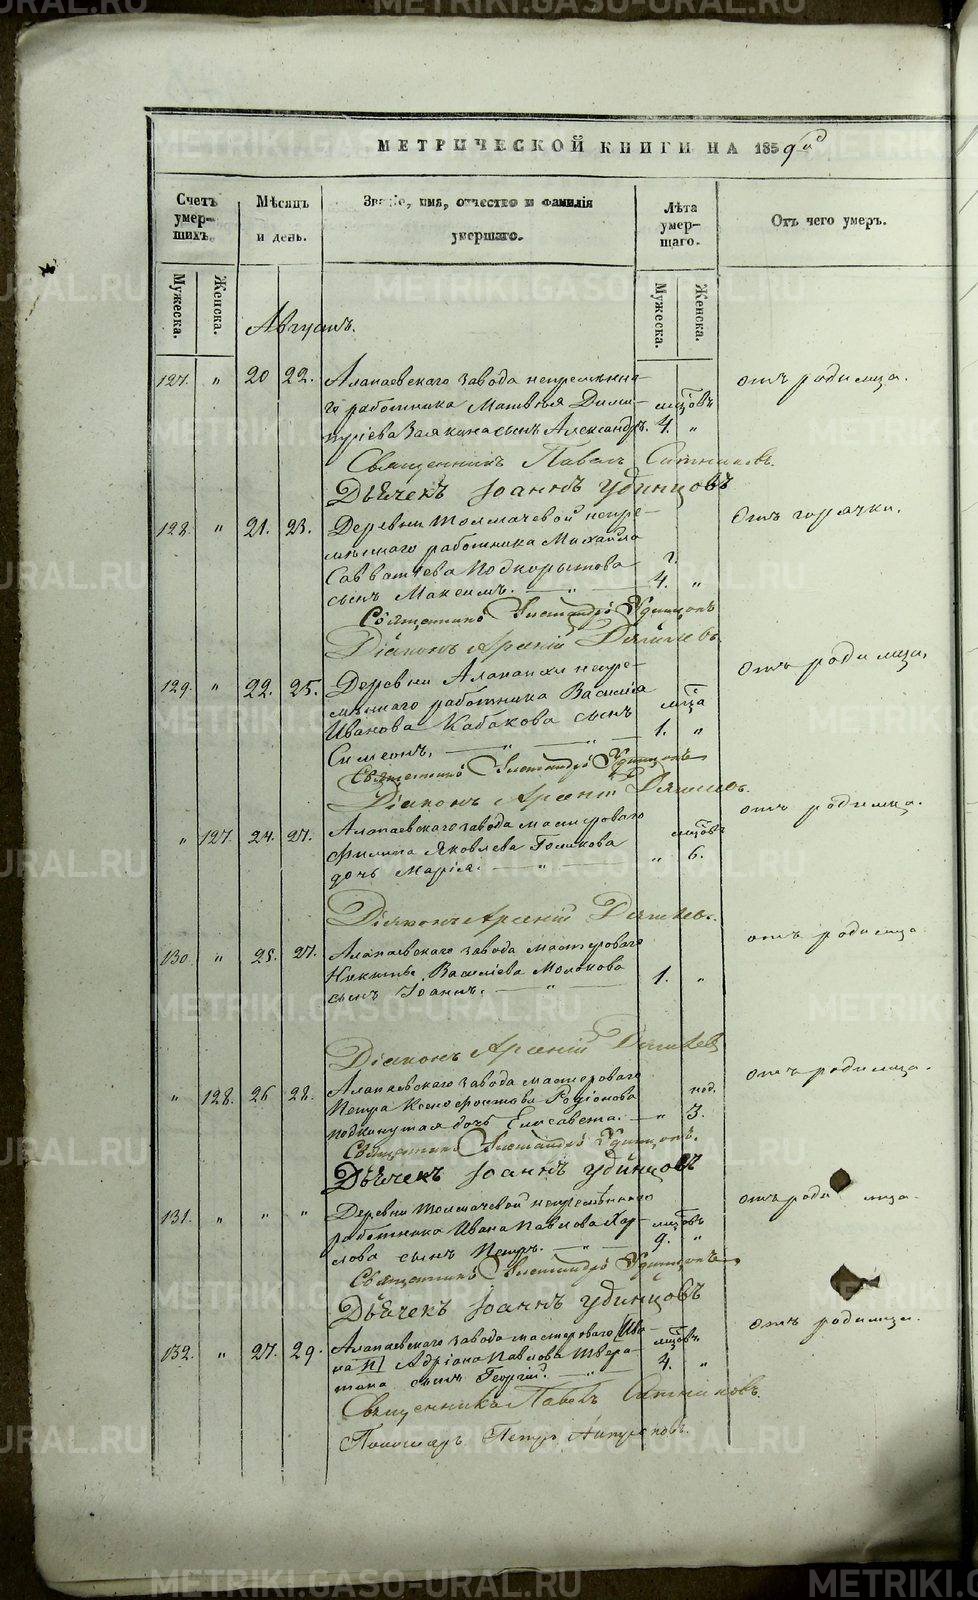 МЕТРИЧЕСКОЙ КНИГИ НА 1859й
Счетъ умер-шихъ.
Мѣсяцъ и день.
Званіе, имя, отчество и фамилія умершаго.
Лѣта умер-шаго.
Отъ чего умеръ.
Мужеска.
Женска.
Мужеска.
Женска.
Августъ.
127. „ 20 22. Алапаевскаго завода непремѣнна- отъ родимца.
го работника Матвѣя Дими- мцовъ
тріева Заякина сынъ Александръ. 4. „
Священникъ Павелъ Ситниковъ.
Дьячекъ Іоаннъ Удинцовъ
128. „ 21. 23. Деревни Толмачевой непре- Отъ горячки.
мѣннаго работника Михаила
Савватѣева Подкорытова г.
сынъ Максимъ. — „ — 4. „
Священникъ Александръ Удинцовъ
Діаконъ Арсеній
129. „ 22. 25. Деревни Алапахи непре- Отъ родимца.
мѣннаго работника Василія мца
Иванова Кабакова сынъ 1. „
Симеонъ. — „ —
Священникъ Александръ Удинцовъ
Діаконъ Арсеній
„ 127. 24. 27. Алапаевскаго завода мастероваго отъ родимца.
Филипа Яковлева Голикова мцовъ
дочь Марія. — „ — „ 6.
Діаконъ Арсеній
130. „ 25. 27. Алапаевскаго завода мастероваго отъ родимца
Никиты Василіева Молокова
сынъ Іоаннъ. — „ — 1. „
Діаконъ Арсеній
„ 128. 26 28. Алапаевскаго завода мастероваго отъ родимца.
Петра Ксенофонтова Родіонова нед.
подкинутая дочь Елисавета. — „ 3.
Священникъ Александръ Удинцовъ.
Дьячекъ Іоаннъ Удинцовъ
131. „ „ „ Деревни Толмачевой непремѣннаго отъ родимца.
работника Ивана Павлова Хар- мцовъ
лова сынъ Петръ. — „ — 9. „
Священникъ Александръ Удинцовъ
Дьячекъ Іоаннъ Удинцовъ
132. „ 27. 29. Алапаевскаго завода мастероваго Ива- отъ родимца.
на П Адріана Павлова мцовъ
сынъ Георгій. — „ — 4. „
Священникъ Павелъ Ситниковъ
Пономарь Петръ
METRIKI.GASO-URAL.RU